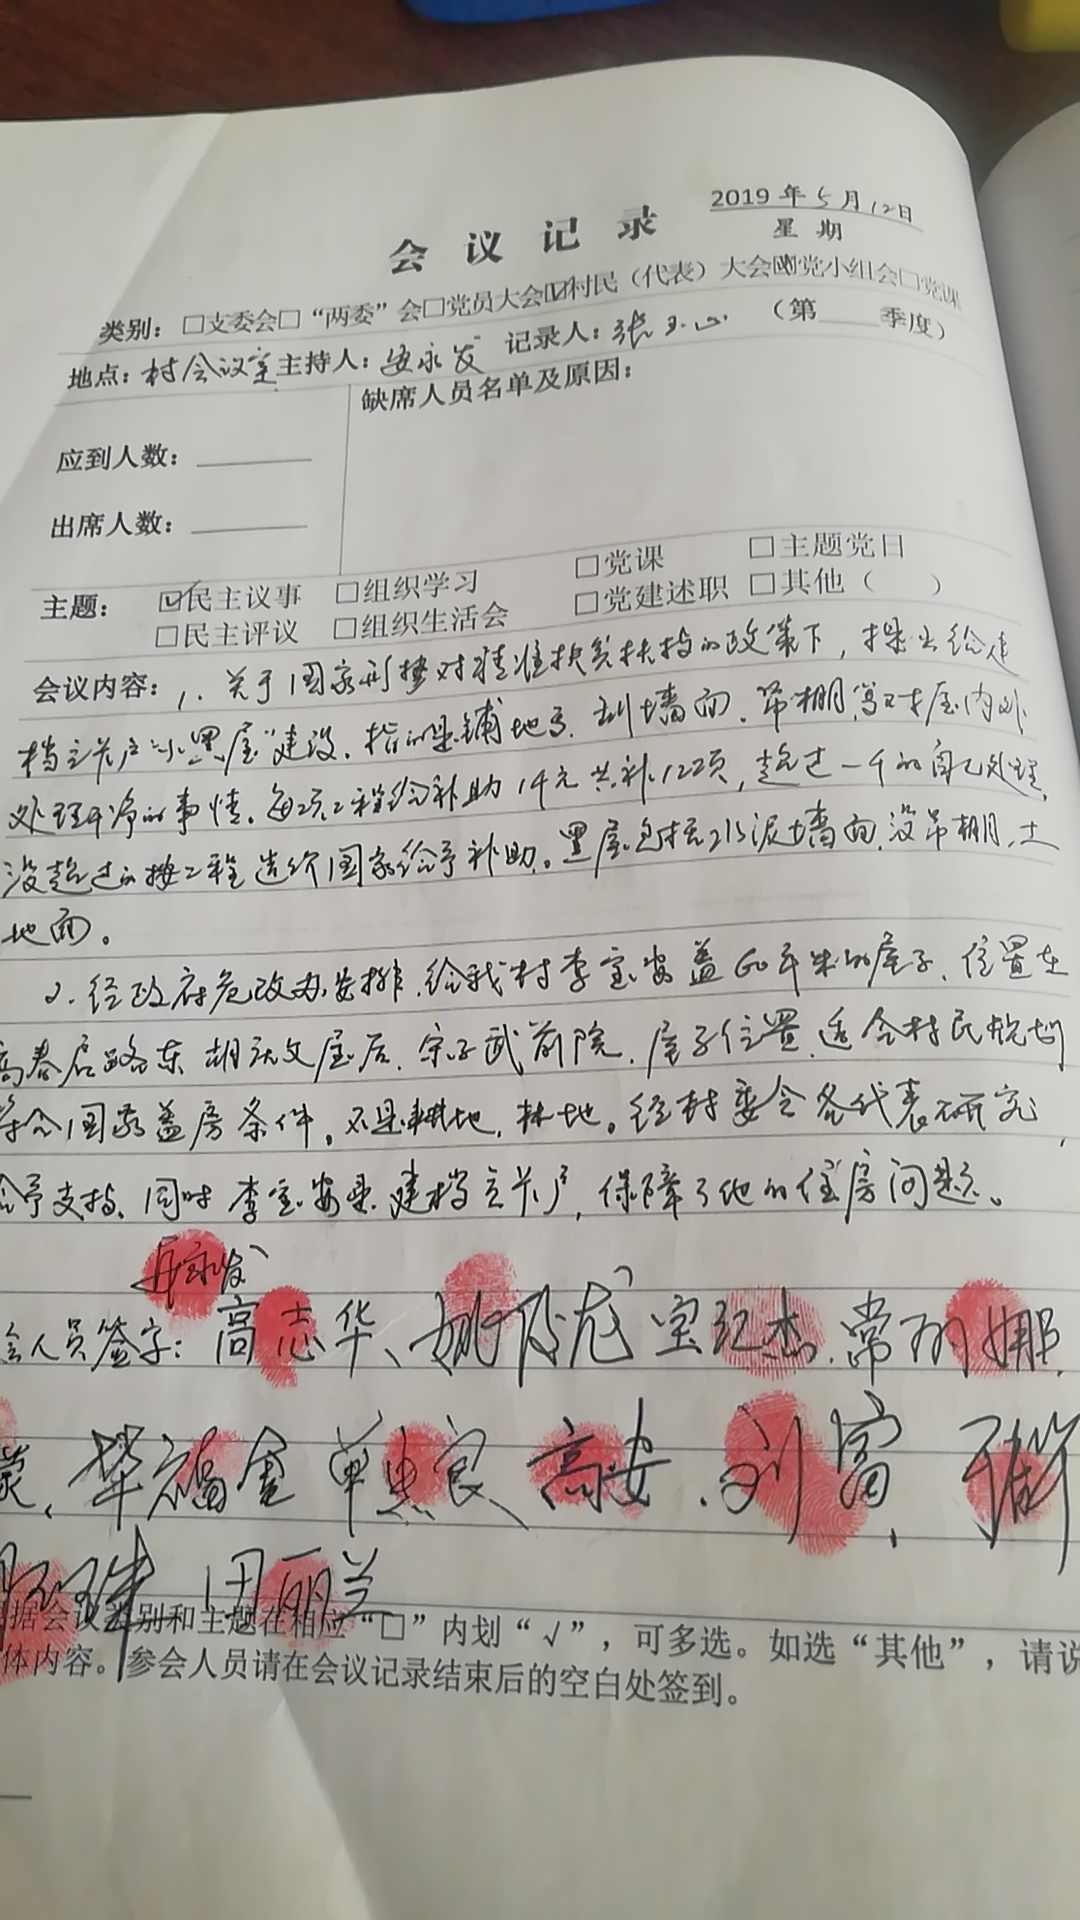 2019年5月12日
会议记录
星期
类别：□支委会□“两委”会□党员大会☑村民（代表）大会□党小组会□党课
地点：村会议室 主持人：安永发 记录人：张 （第 季度）
缺席人员名单及原因：
应到人数：
出席人数：
主题： ☑民主议事 □组织学习 □党课 □主题党日
□民主评议 □组织生活会 □党建述职 □其他（ ）
会议内容：1、关于国家 对精准扶贫扶持的政策下，提出给建
档立卡户“小黑屋”建设，指的是铺地 、刮墙面、吊棚， 屋内外
处理干净的事情。每项工程给补助1千元共补 项，超过一千的自己处理，
没超过的按工程造价国家给予补助。黑屋包括水泥墙面，没吊棚，土
地面。
2、经政府危改办安排，给我村李宝安盖60平米的屋子，位置在
高春 路东 胡 文屋后，宋子武前院，屋子位置适合村民规划
符合国家盖房条件。不是耕地，林地。经村委会各代表研究，
给予支持，同时李宝安是建档立卡户，保障了他的住房问题。
安永发
会人员签字：高志华、姚 龙 宝 杰、常 娜
福金 单 良 高安、刘富、
田丽兰
据会议类别和主题在相应“□”内划“√”，可多选。如选“其他”，请说
体内容。参会人员请在会议记录结束后的空白处签到。